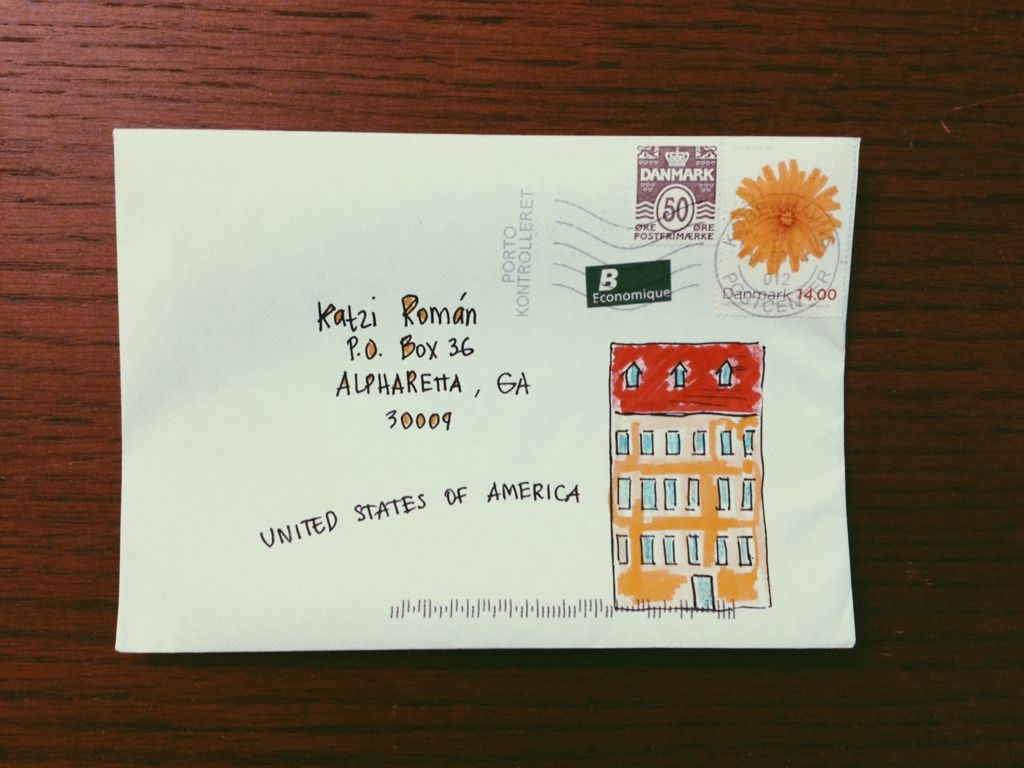 PORTO
KONTROLLERET
DANMARK
50
ØRE ØRE
POSTFRIMÆRKE
B
Economique
012
POSTCENTER
Danmark 14.00
Katzi Román
P.O. Box 36
ALPHARETTA, GA
30009
UNITED STATES OF AMERICA